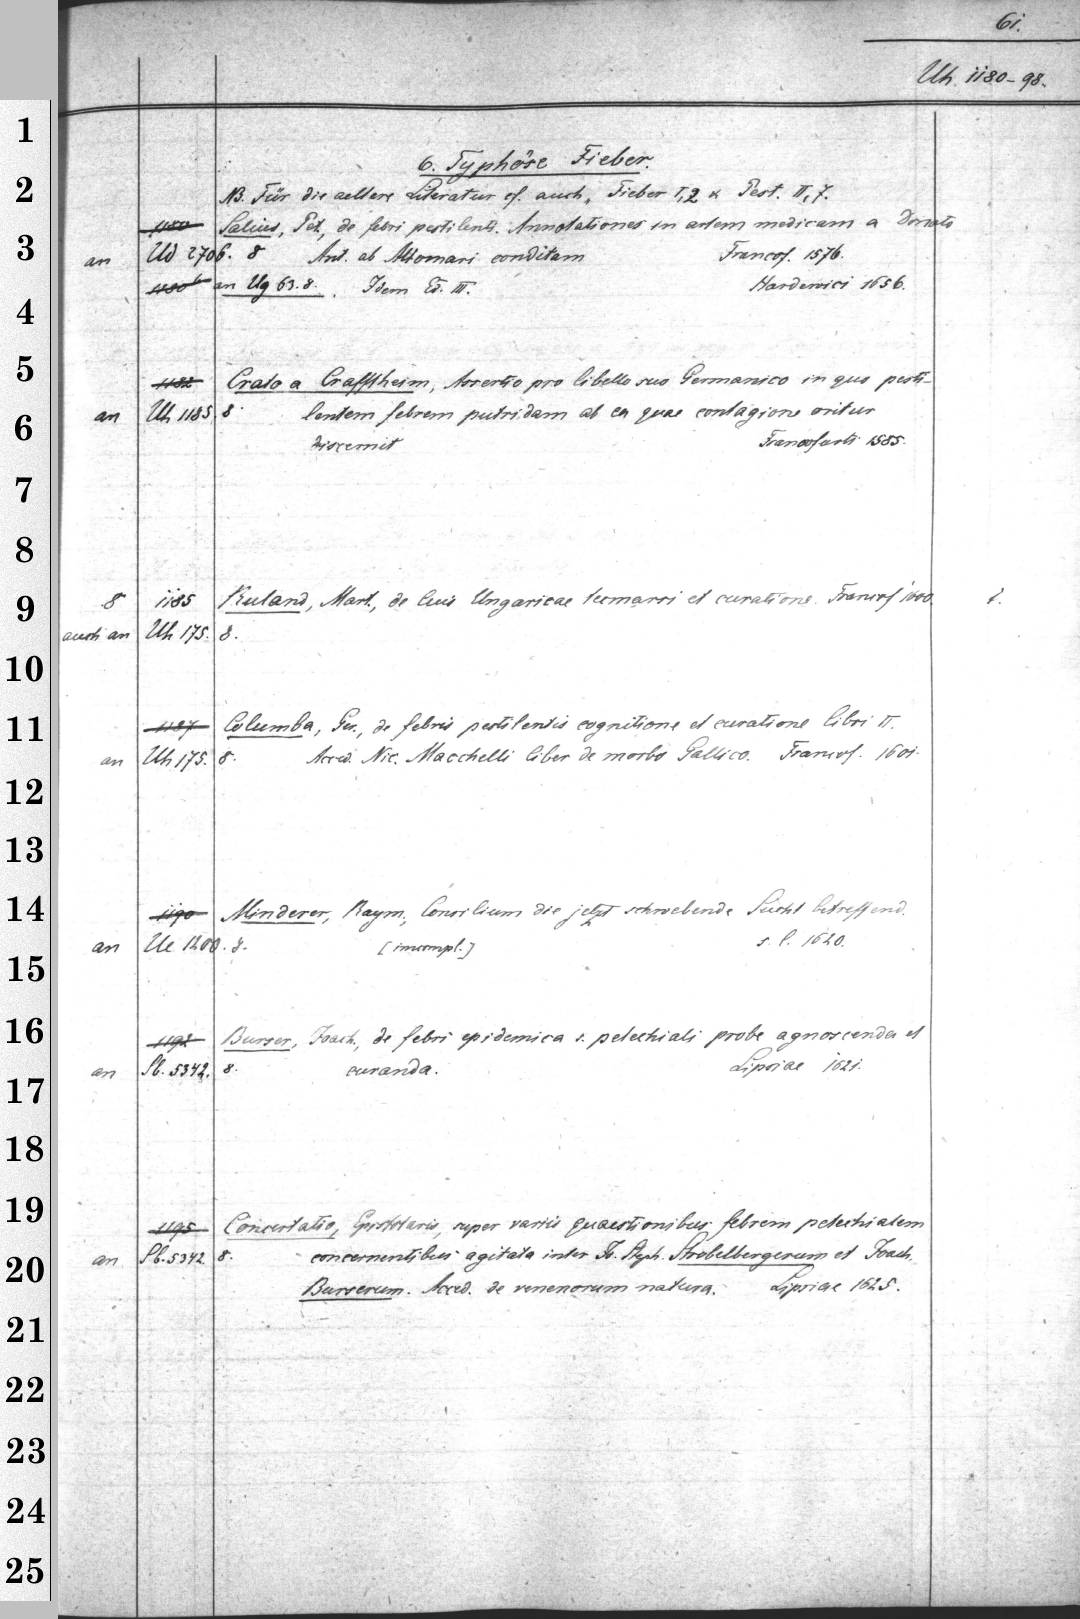 61.
Uh 1180-98.
6. Typhöse Fieber.
NB. Für die aeltere Literatur cf. auch, Fieber I,2 & Pest. II,7.
1180 Salius, Pet., de febri pestilenti. Annotationes in artem medicam a Donato
an Ud 2706. 8 Ant. ab Altomari conditam Francof. 1576.
1180b an Ug 63. 8. Idem Ed. III. Hardevici 1656.
1182 Crato a Crafftheim, Assertio pro libello suo Germanico in quo pesti-
an Uh 1185 8. lentem febrem putridam ab ea quae contagione oritur
discernit Francofurti 1585.
8 1185 Ruland, Mart., de luis Ungaricae tecmarsi et curatione. Francof 1600. 1.
auch an Uh 175. 8.
1187 Columba, Ger., de febris pestilentis cognitione et curatione libri II.
an Uh 175. 8. Acced. Nic. Macchelli liber de morbo Gallico. Francof. 1601.
1190 Minderer, Raym., Consilium die jetzt schwebende Sucht betreffend.
an Ue 1200. 8. [incompl.] s. l. 1620.
1192 Burser, Joach., de febri epidemica s. petechiali probe agnoscenda et
an Sb. 5342. 8. curanda. Lipsiae 1621.
1195 Concertatio, Epistolaris, super variis quaestionibus febrem petechialem
an Sb. 5342 8. concernentibus agitata inter Jo. Steph. Strobelbergerum et Joach.
Burserum. Acced. de venenorum natura. Lipsiae 1625.
1
2
3
4
5
6
7
8
9
10
11
12
13
14
15
16
17
18
19
20
21
22
23
24
25